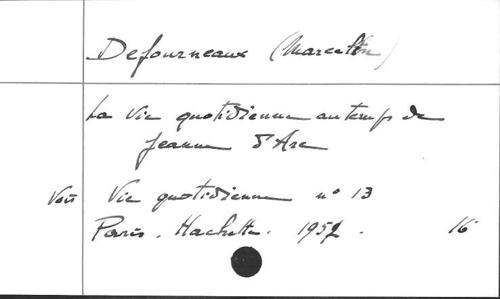 Defourneaux (Marcellin)
La Vie quotidienne au temps de
Jeanne d'Arc
Voir Vie quotidienne n° 13
Paris. Hachette. 1952. 16